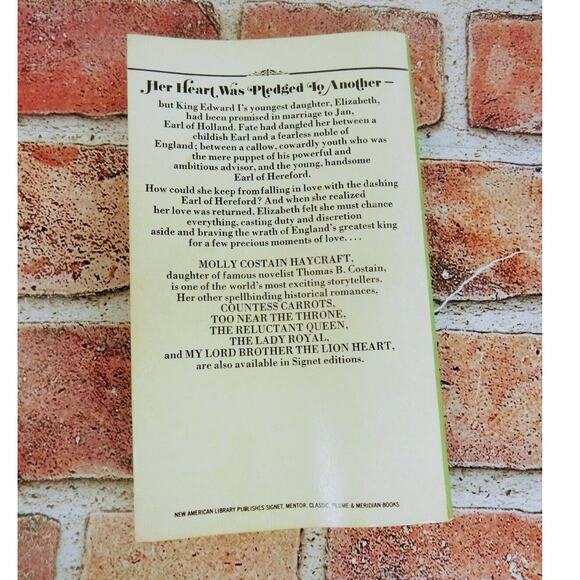 Her Heart Was Pledged To Another—
but King Edward I's youngest daughter, Elizabeth,
had been promised in marriage to Jan,
Earl of Holland. Fate had dangled her between a
childish Earl and a fearless noble of
England; between a callow, cowardly youth who was
the mere puppet of his powerful and
ambitious advisor, and the young, handsome
Earl of Hereford.
How could she keep from falling in love with the dashing
Earl of Hereford? And when she realized
her love was returned, Elizabeth felt she must chance
everything, casting duty and discretion
aside and braving the wrath of England's greatest king
for a few precious moments of love....
MOLLY COSTAIN HAYCRAFT,
daughter of famous novelist Thomas B. Costain,
is one of the world's most exciting storytellers.
Her other spellbinding historical romances,
COUNTESS CARROTS,
TOO NEAR THE THRONE,
THE RELUCTANT QUEEN,
THE LADY ROYAL,
and MY LORD BROTHER THE LION HEART,
are also available in Signet editions.
NEW AMERICAN LIBRARY PUBLISHES SIGNET, MENTOR, CLASSIC, PLUME & MERIDIAN BOOKS